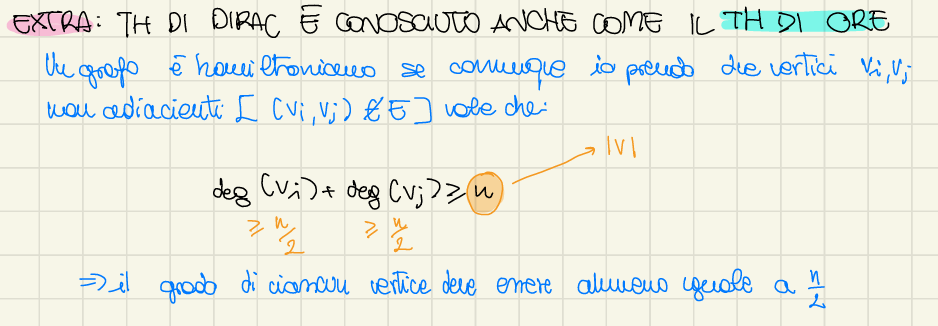 EXTRA: TH DI DIRAC È CONOSCIUTO ANCHE COME IL TH DI ORE
Un grafo è hamiltoniano se comunque io prendo due vertici vi, vj
non adiacenti [ (vi, vj) ∉ E ] vale che:
|V|
deg (vi) + deg (vj) ≥ n
≥ n/2 ≥ n/2
⇒ il grado di ciascun vertice deve essere almeno uguale a n/2